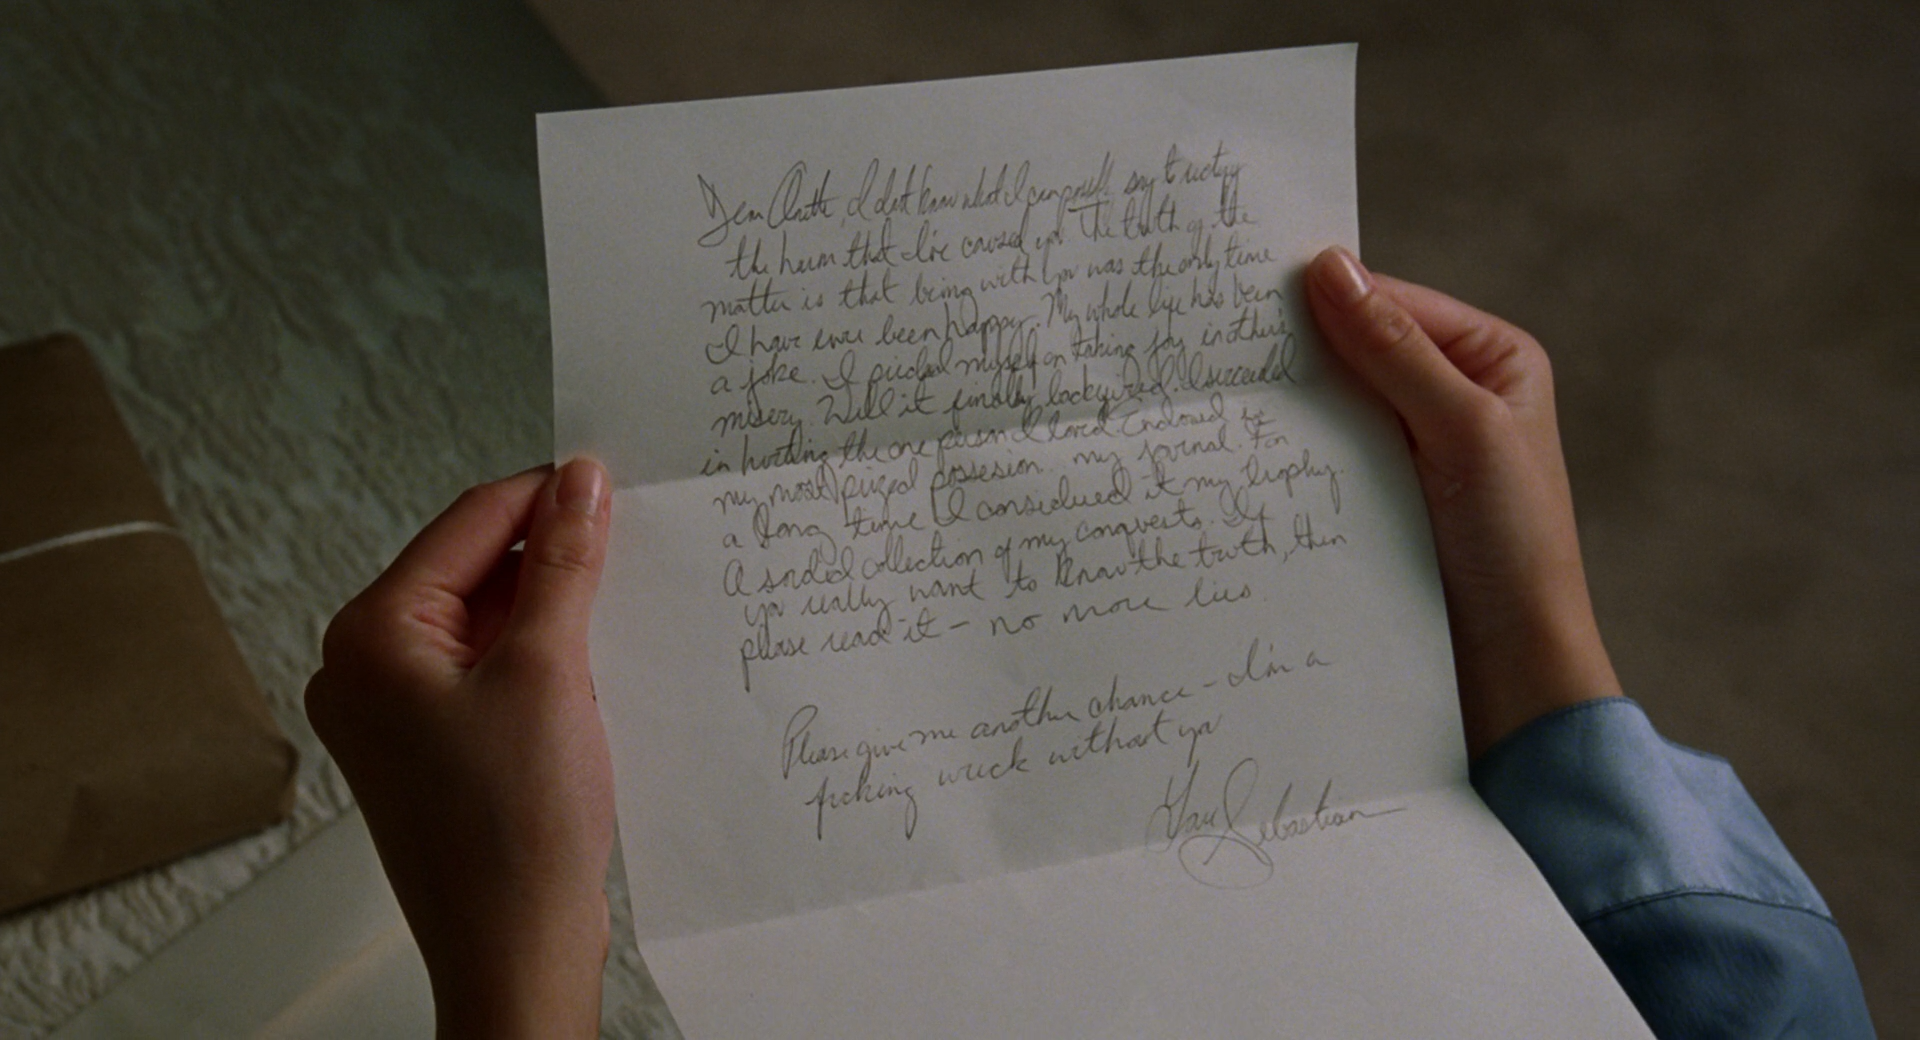 Dear Annette, I don't know what I can possibly say to rectify
the harm that I've caused you. The truth of the
matter is that being with you was the only time
I have ever been happy. My whole life has been
a joke. I prided myself on taking joy in other's
misery. Well it finally backfired. I succeeded
in hurting the one person I loved. Enclosed is
my most prized possesion. my journal. For
a long time I considered it my trophy.
A sordid collection of my conquests. If
you really want to know the truth, then
please read it - no more lies.
Please give me another chance - I'm a
fucking wreck without you
Sebastian